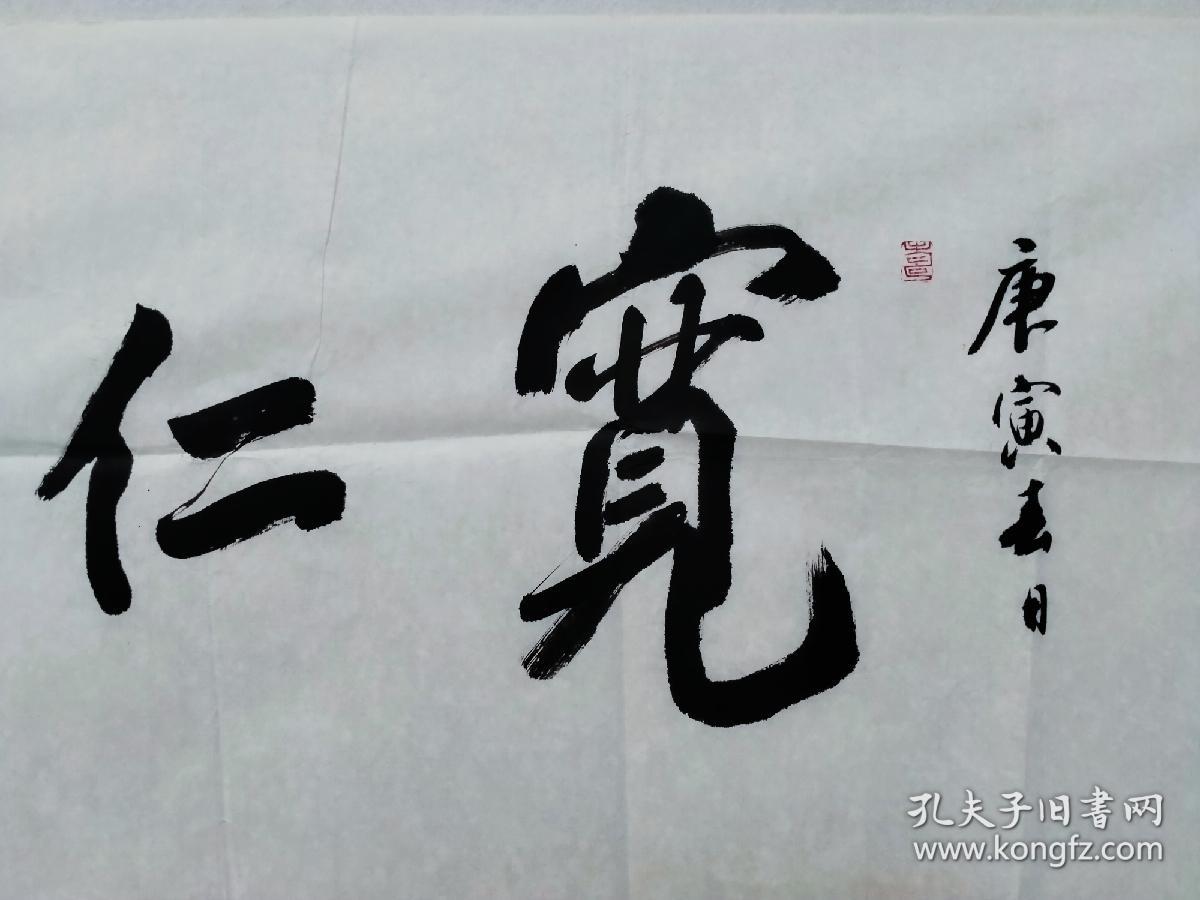 庚寅春日
寬仁
孔夫子旧書网
www.kongfz.com